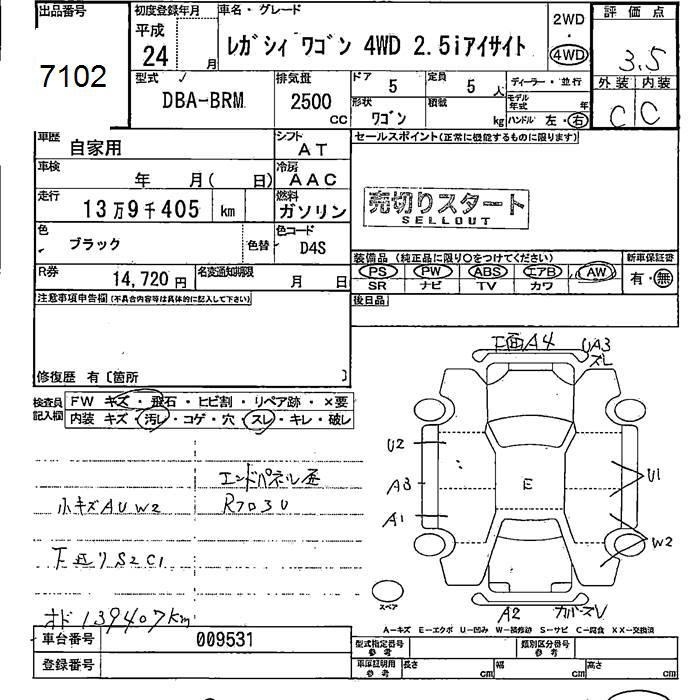 出品番号
7102
初度登録年月
平成
24 月
車名・グレード
レガシィ ワゴン 4WD 2.5iアイサイト
2WD
・
4WD
評価点
3.5
外装 内装
C C
型式
DBA-BRM
排気量
2500
CC
ドア
5
定員
5 人
ディーラー・並行
形状
ワゴン
積載
kg
モデル年式
年
ハンドル 左・右
車歴
自家用
シフト
AT
車検
年 月( 日)
冷房
AAC
走行
13万9千405 km
燃料
ガソリン
色
ブラック
色替
色コード
D4S
R券
14,720円
名変通知期限
月 日
セールスポイント(正常に機能するものに限ります)
売切りスタート
SELLOUT
装備品 (純正品に限り○をつけてください)
新車保証書
PS PW ABS エアB AW
SR ナビ TV カワ
有・無
後日品
注意事項申告欄(不具合内容等は具体的に記入して下さい)
修復歴 有〔箇所 〕
検査員
記入欄
FW キズ・飛石・ヒビ割・リペア跡・×要
内装 キズ・汚レ・コゲ・穴・スレ・キレ・破レ
小キズAUW2
下廻りS2C1
オド139407km
エンドパネル歪
Rフロ3U
下面A4
UA3
スレ
U2
A3
A1
E
U1
W2
スペア
A2
A-キズ E-エクボ U-凹み W-補修跡 S-サビ C-腐食 XX-交換済
車台番号
009531
登録番号
型式指定番号
参考
類別区分番号
参考
車庫証明用
参考
長さ
cm
幅
cm
高さ
cm